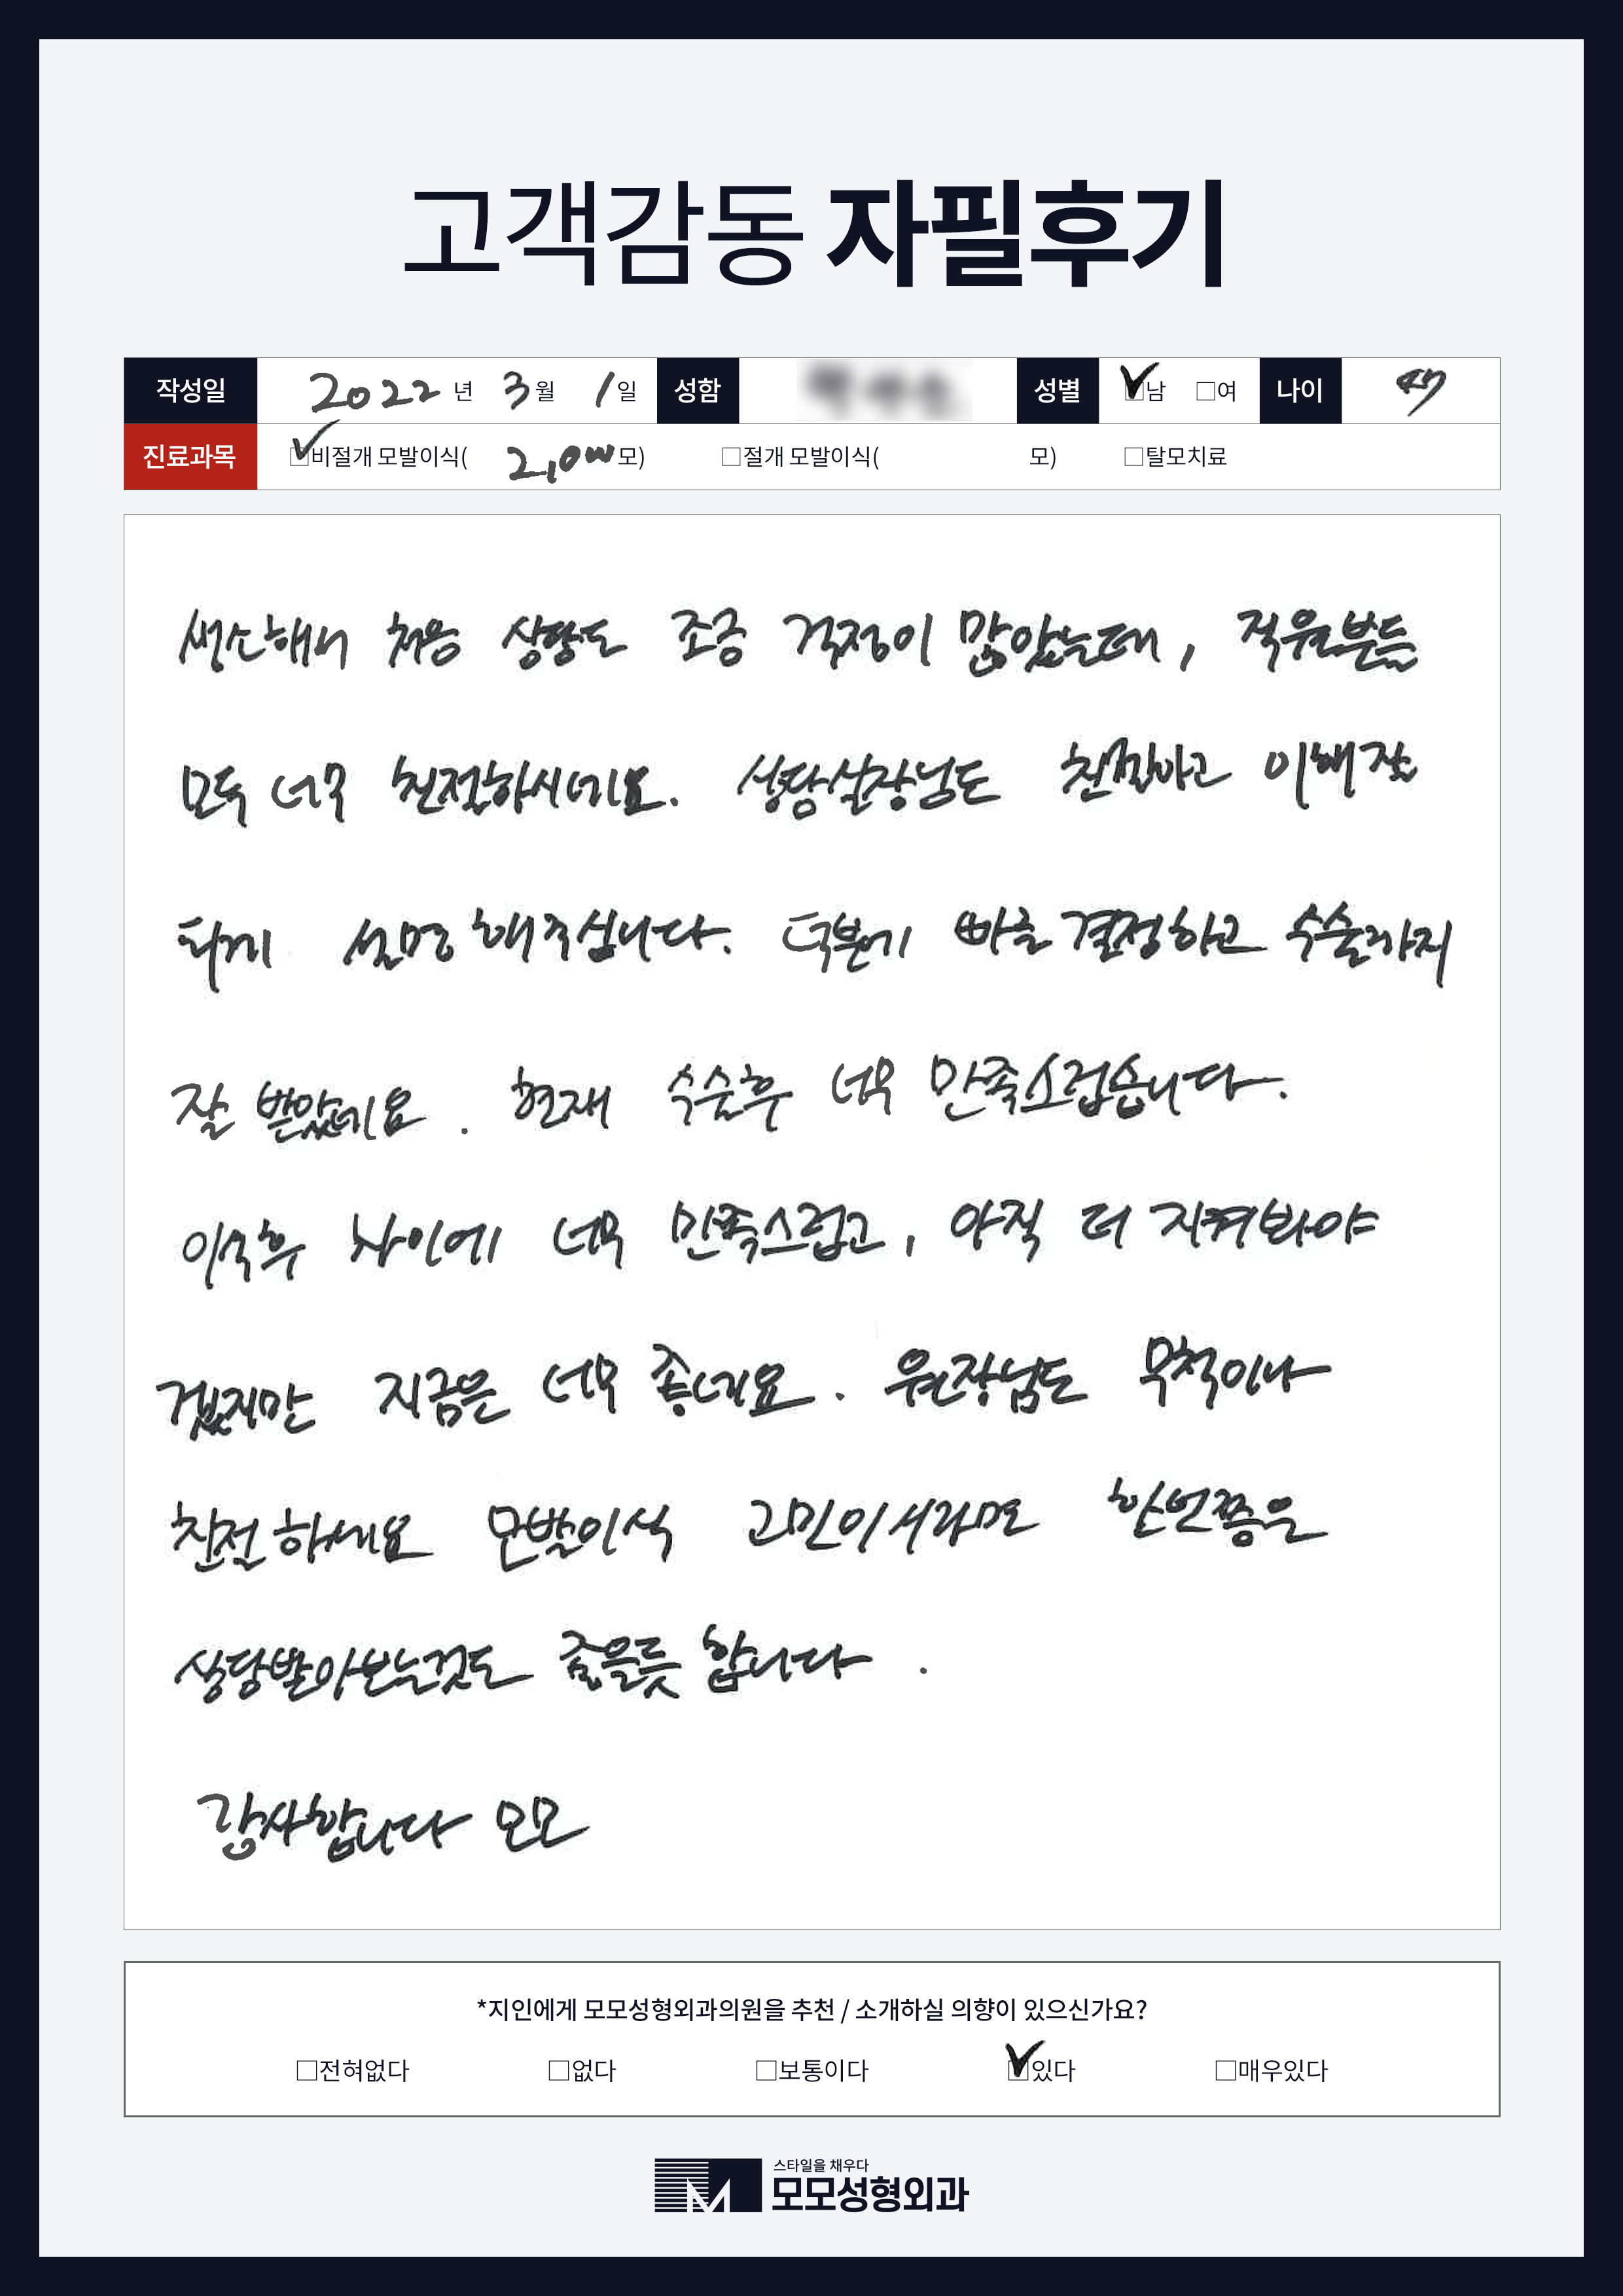 고객감동 자필후기
작성일 2022 년 3 월 1 일 성함 성별 ☑남 □여 나이 47
진료과목 ☑비절개 모발이식( 2,000 모) □절개 모발이식( 모) □탈모치료
처음 상담도 조금 걱정이 많았는데, 직원분들
모두 너무 친절하시네요. 상담실장님도 친절하고 이해 잘
되게 설명 해주십니다. 덕분에 빠른 결정하고 수술까지
잘 받았네요. 현재 수술후 너무 만족스럽습니다.
이식후 차이에 너무 만족스럽고, 아직 더 지켜봐야
겠지만 지금은 너무 좋네요. 원장님도 무척이나
친절하세요 모발이식 고민이시라면 한번쯤은
상담받아보는것도 좋을듯 합니다.
감사합니다 모모
*지인에게 모모성형외과의원을 추천 / 소개하실 의향이 있으신가요?
□전혀없다 □없다 □보통이다 ☑있다 □매우있다
스타일을 채우다
모모성형외과